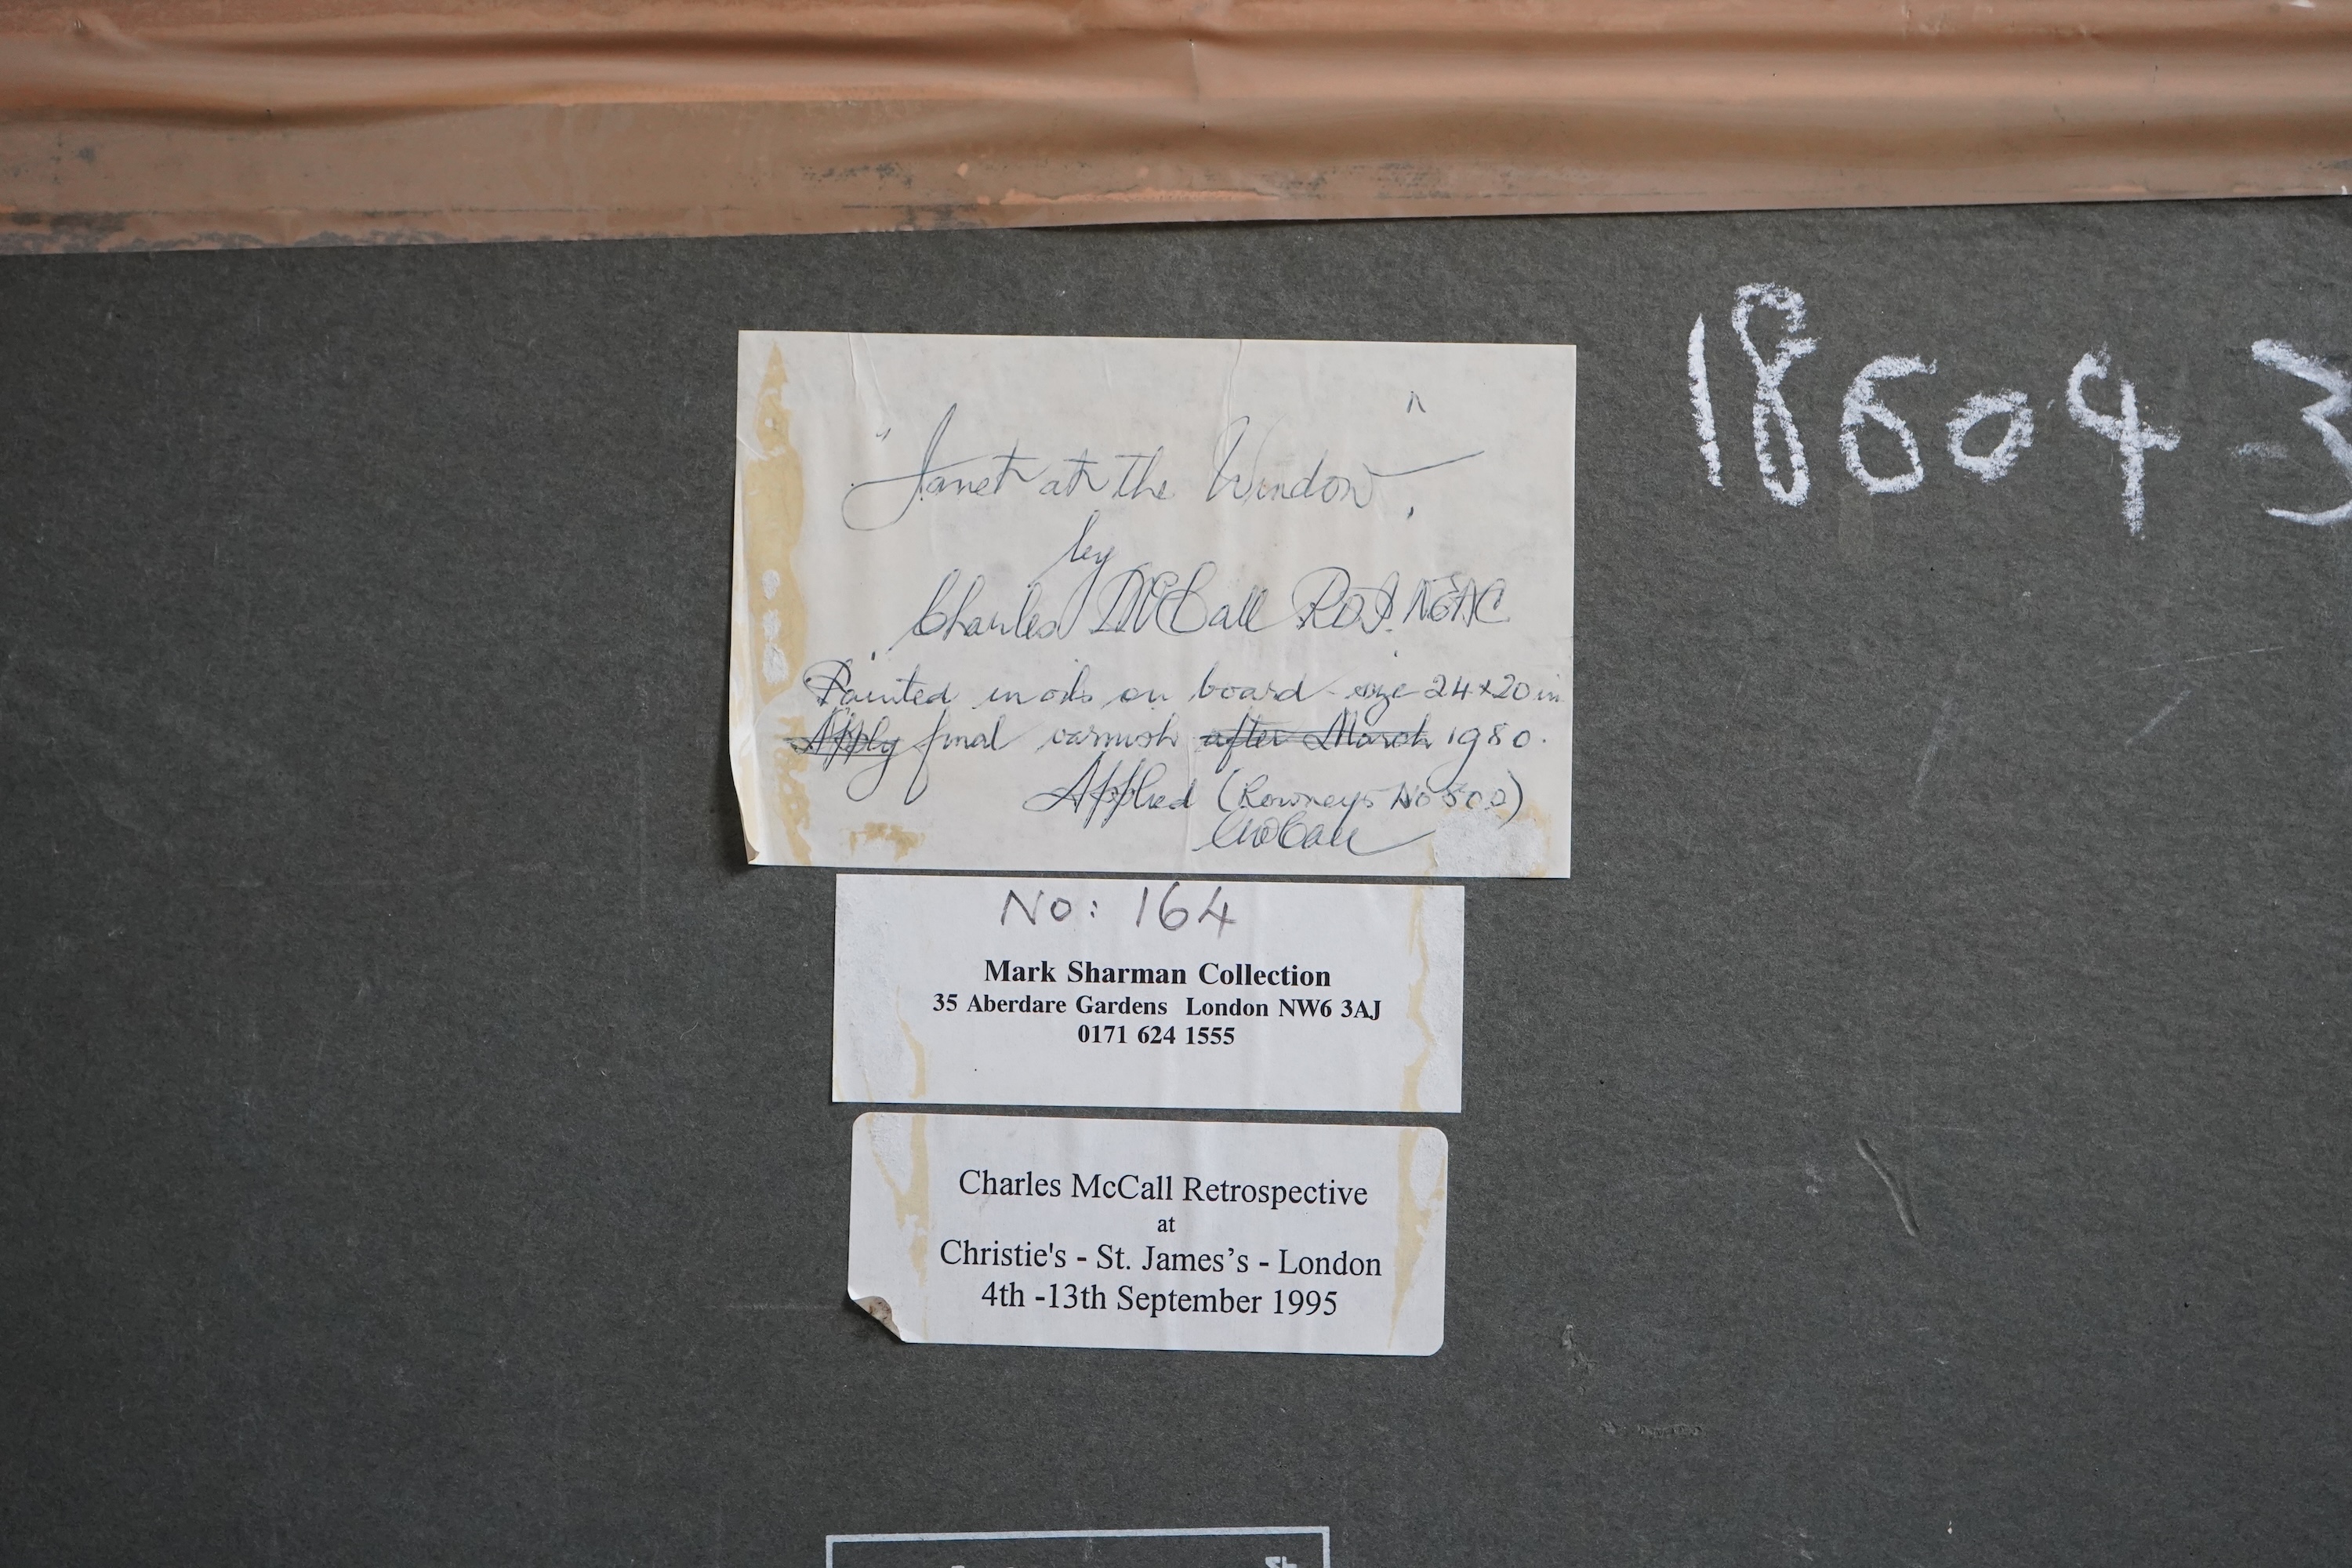 "Janet at the Window".
by
Charles McCall ROI. NEAC
Painted in oils on board - size 24 x 20 in
Apply final varnish after March 1980.
Applied (Rowneys No 800)
McCall
No: 164
Mark Sharman Collection
35 Aberdare Gardens London NW6 3AJ
0171 624 1555
Charles McCall Retrospective
at
Christie's - St. James’s - London
4th -13th September 1995
18604-3